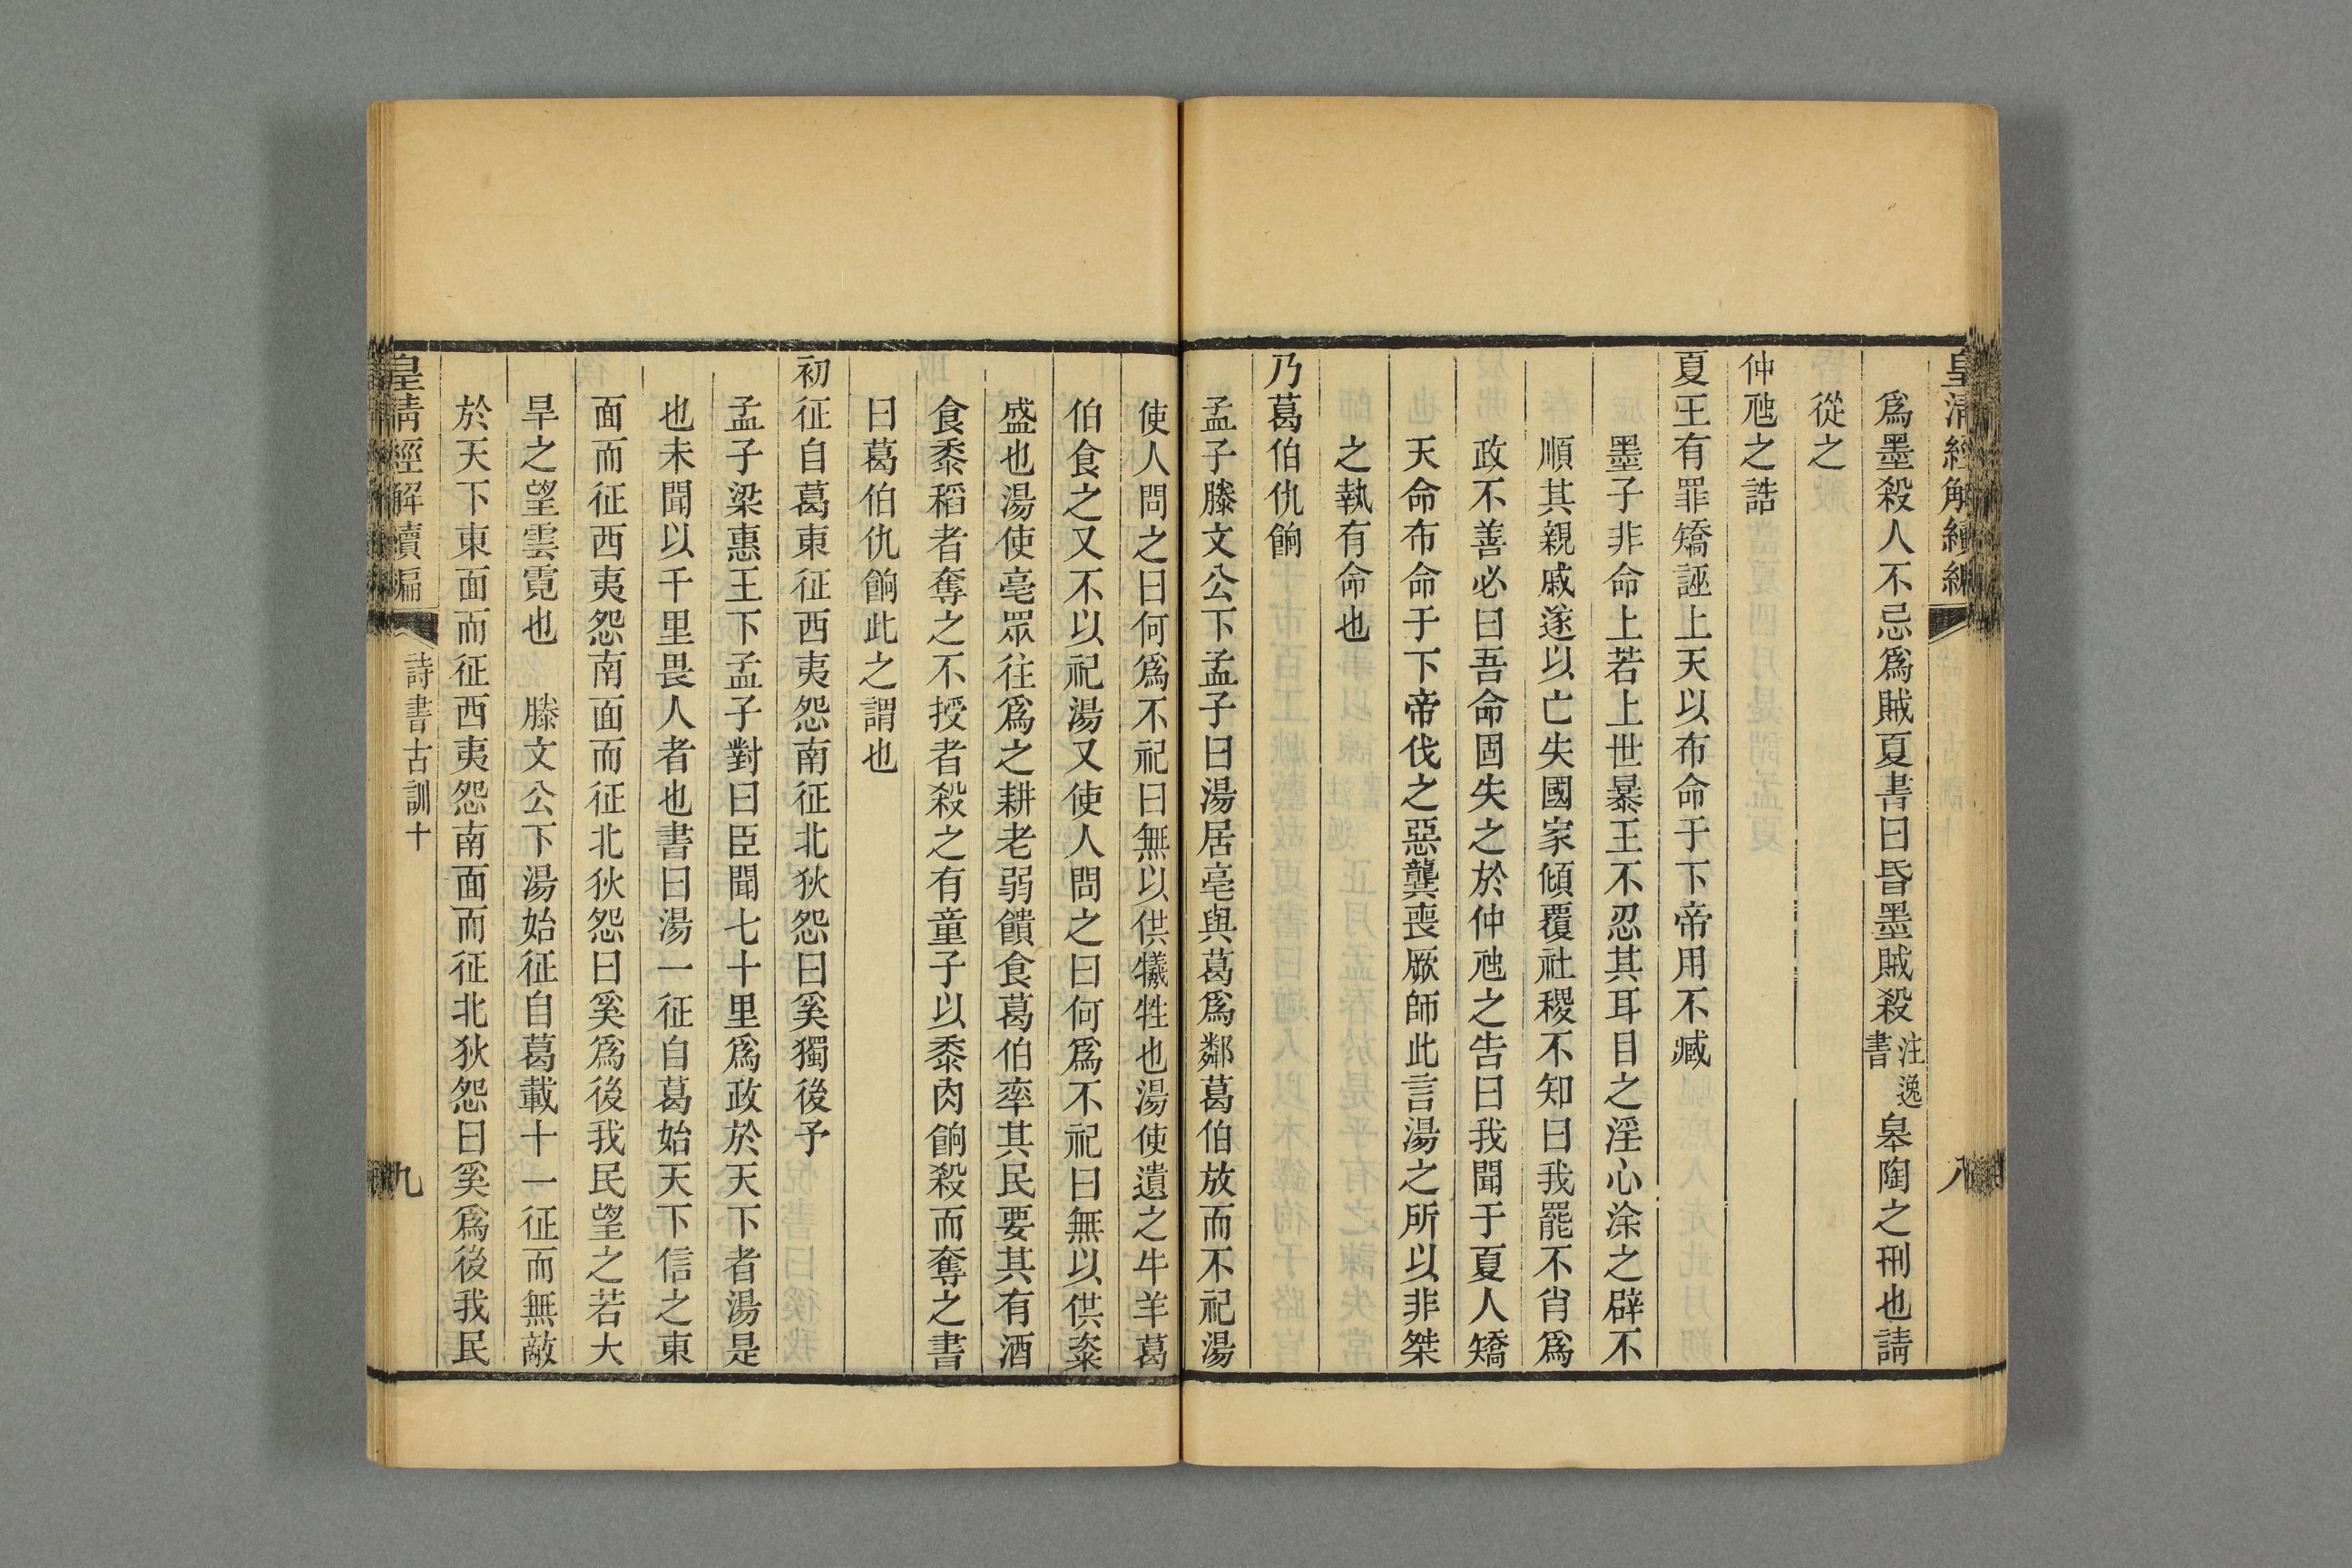 皇清經解續編
八
爲墨殺人不忌爲賊夏書曰昏墨賊殺注逸書皋陶之刑也請
從之
仲虺之誥
夏王有罪矯誣上天以布命于下帝用不臧
墨子非命上若上世暴王不忍其耳目之淫心涂之辟不
順其親戚遂以亡失國家傾覆社稷不知曰我罷不肖爲
政不善必曰吾命固失之於仲虺之告曰我聞于夏人矯
天命布命于下帝伐之惡龔喪厥師此言湯之所以非桀
之執有命也
乃葛伯仇餉
孟子滕文公下孟子曰湯居亳與葛爲鄰葛伯放而不祀湯
使人問之曰何爲不祀曰無以供犧牲也湯使遺之牛羊葛
伯食之又不以祀湯又使人問之曰何爲不祀曰無以供粢
盛也湯使亳眾往爲之耕老弱饋食葛伯率其民要其有酒
食黍稻者奪之不授者殺之有童子以黍肉餉殺而奪之書
曰葛伯仇餉此之謂也
初征自葛東征西夷怨南征北狄怨曰奚獨後予
孟子梁惠王下孟子對曰臣聞七十里爲政於天下者湯是
也未聞以千里畏人者也書曰湯一征自葛始天下信之東
面而征西夷怨南面而征北狄怨曰奚爲後我民望之若大
旱之望雲霓也　滕文公下湯始征自葛載十一征而無敵
於天下東面而征西夷怨南面而征北狄怨曰奚爲後我民
皇清經解續編
詩書古訓十
九